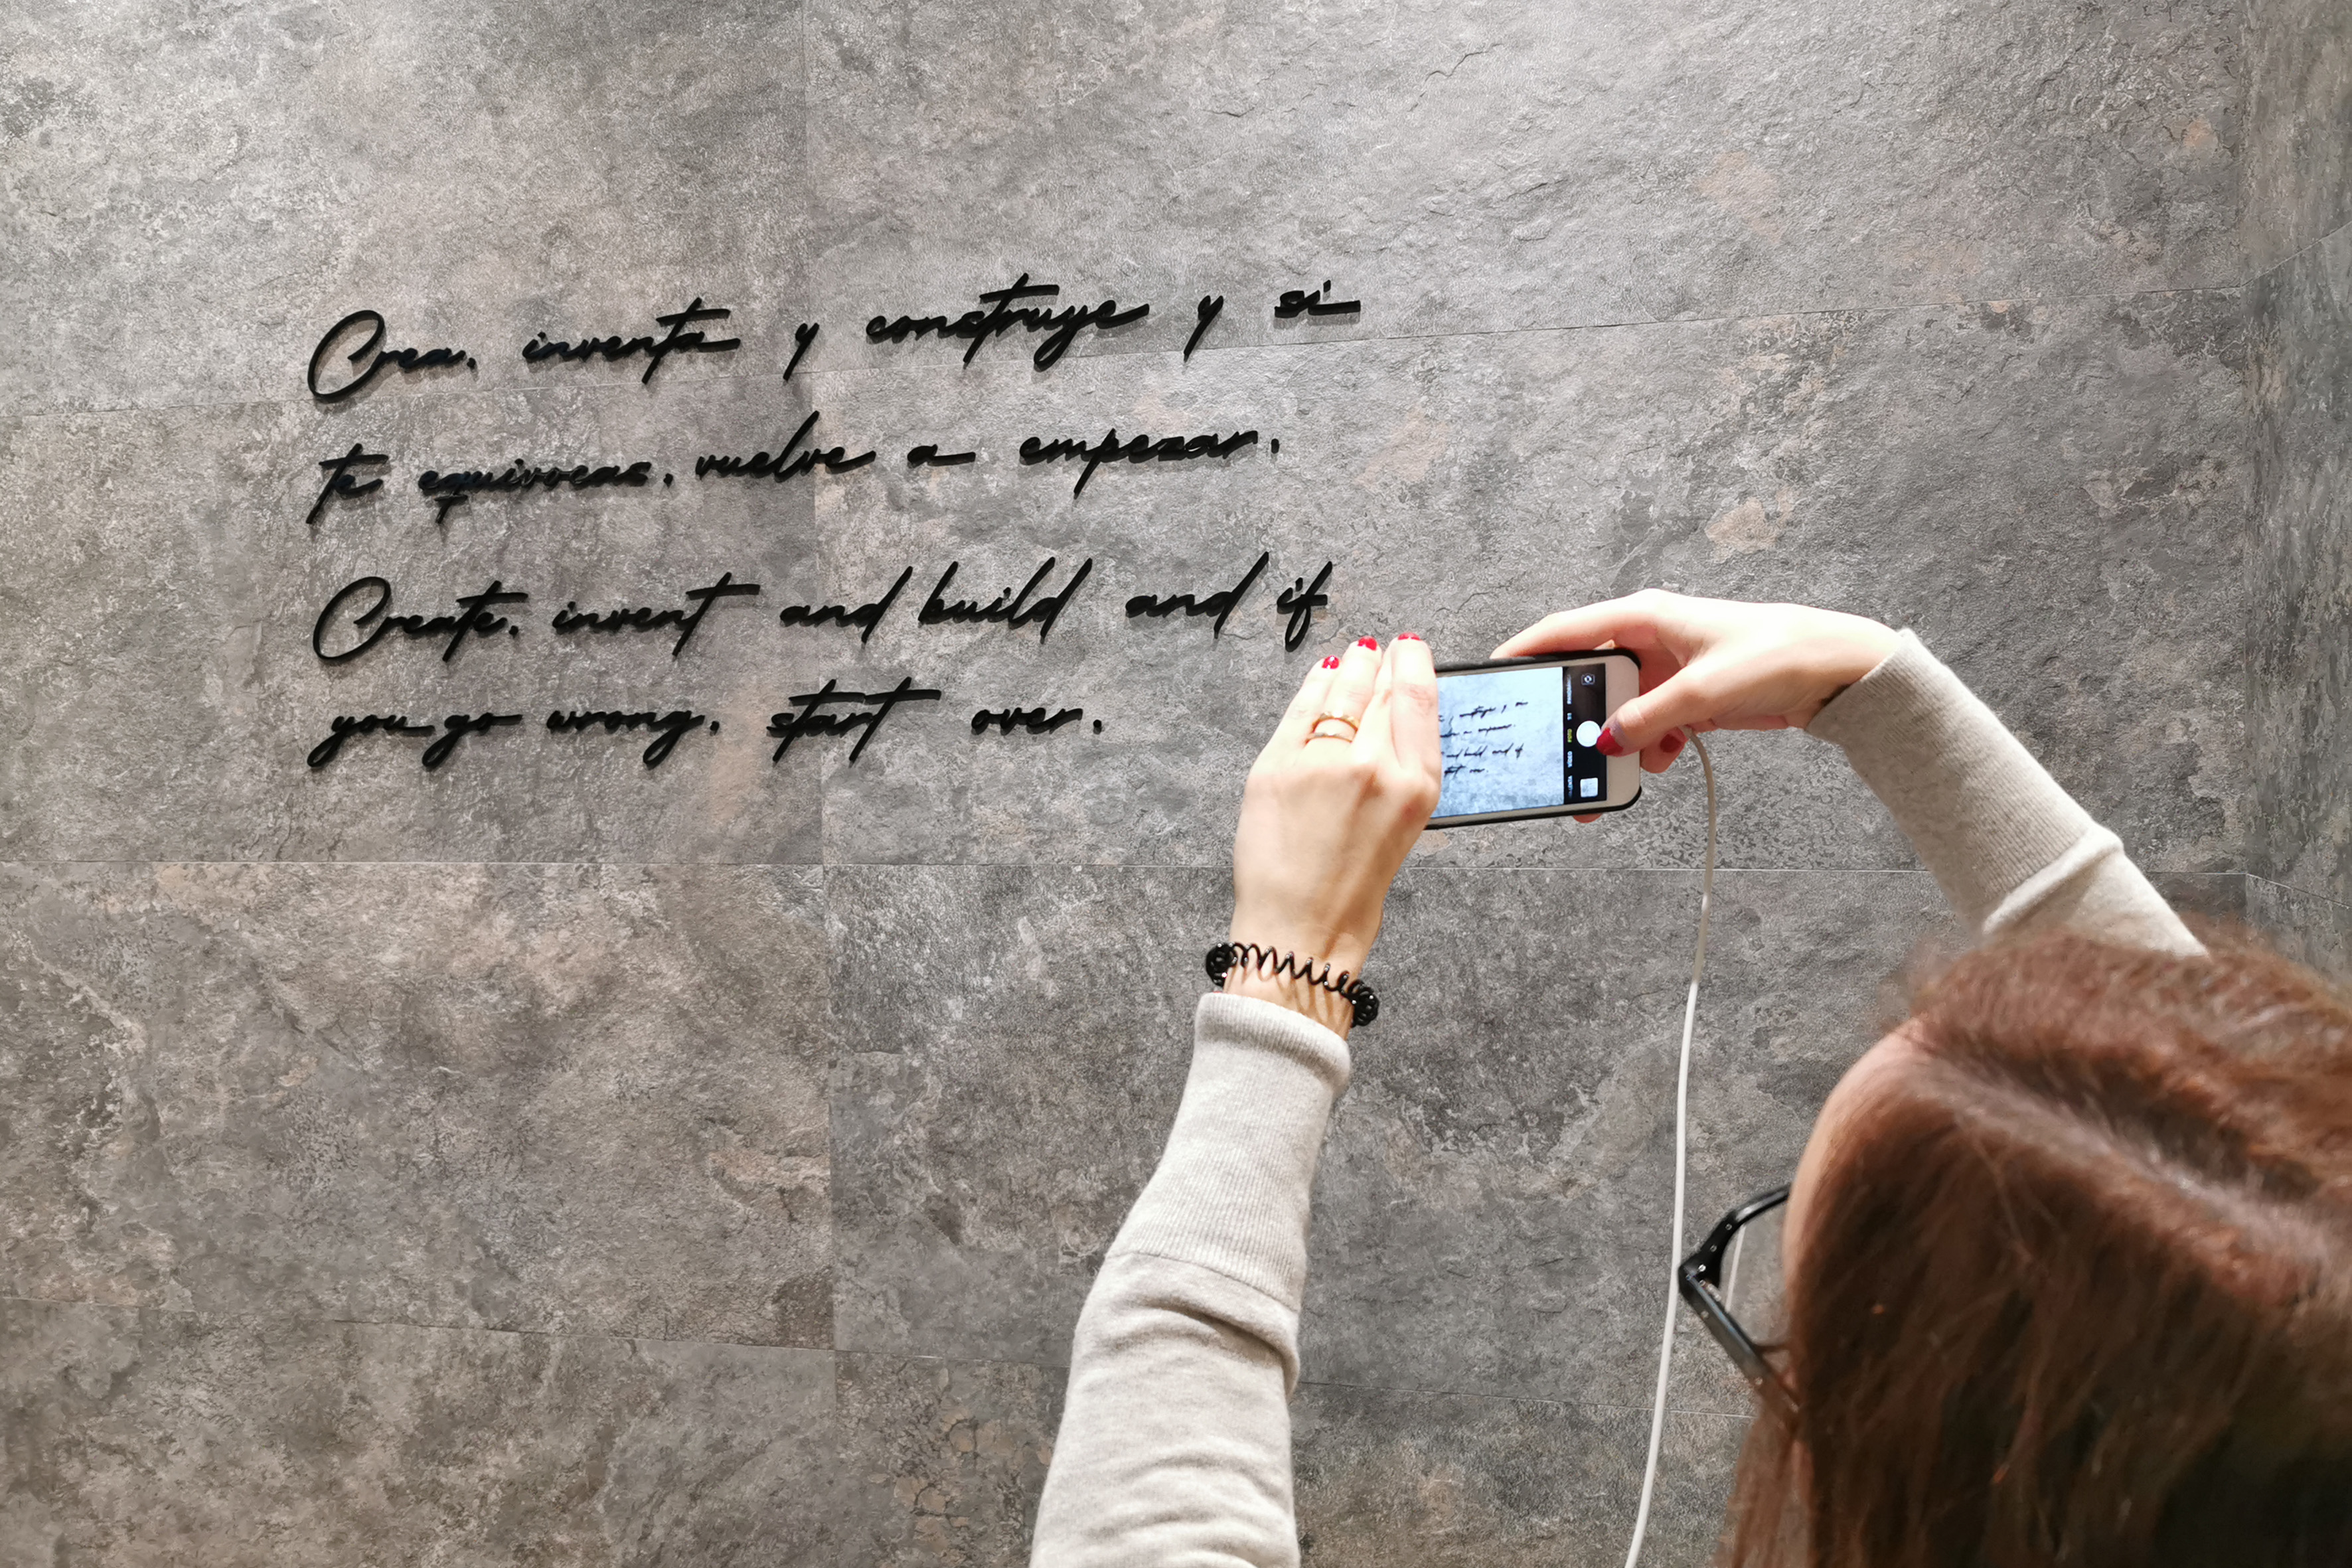 Crea, inventa y construye y si
te equivocas, vuelve a empezar.
Create, invent and build and if
you go wrong, start over.